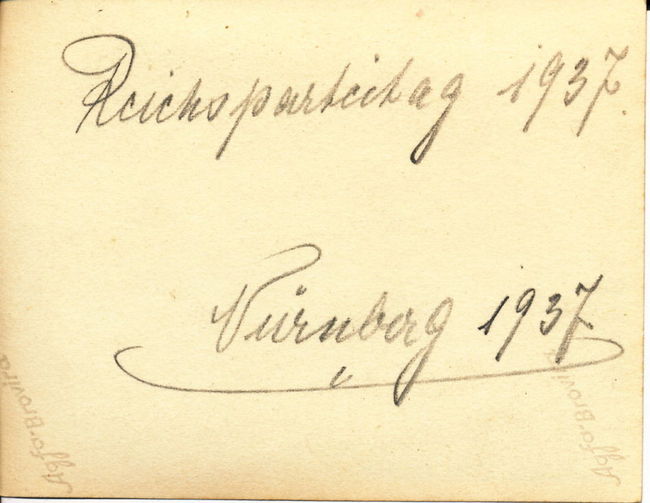 Reichsparteitag 1937.
Nürnberg 1937
Agfa-Brovira
Agfa-Brovira